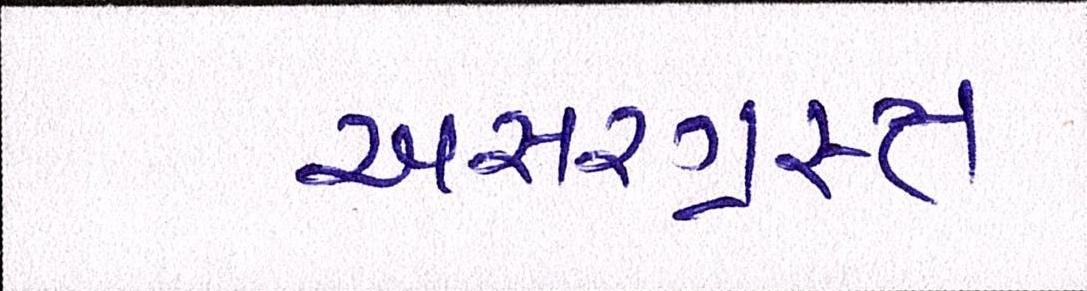 અસરગ્રસ્ત